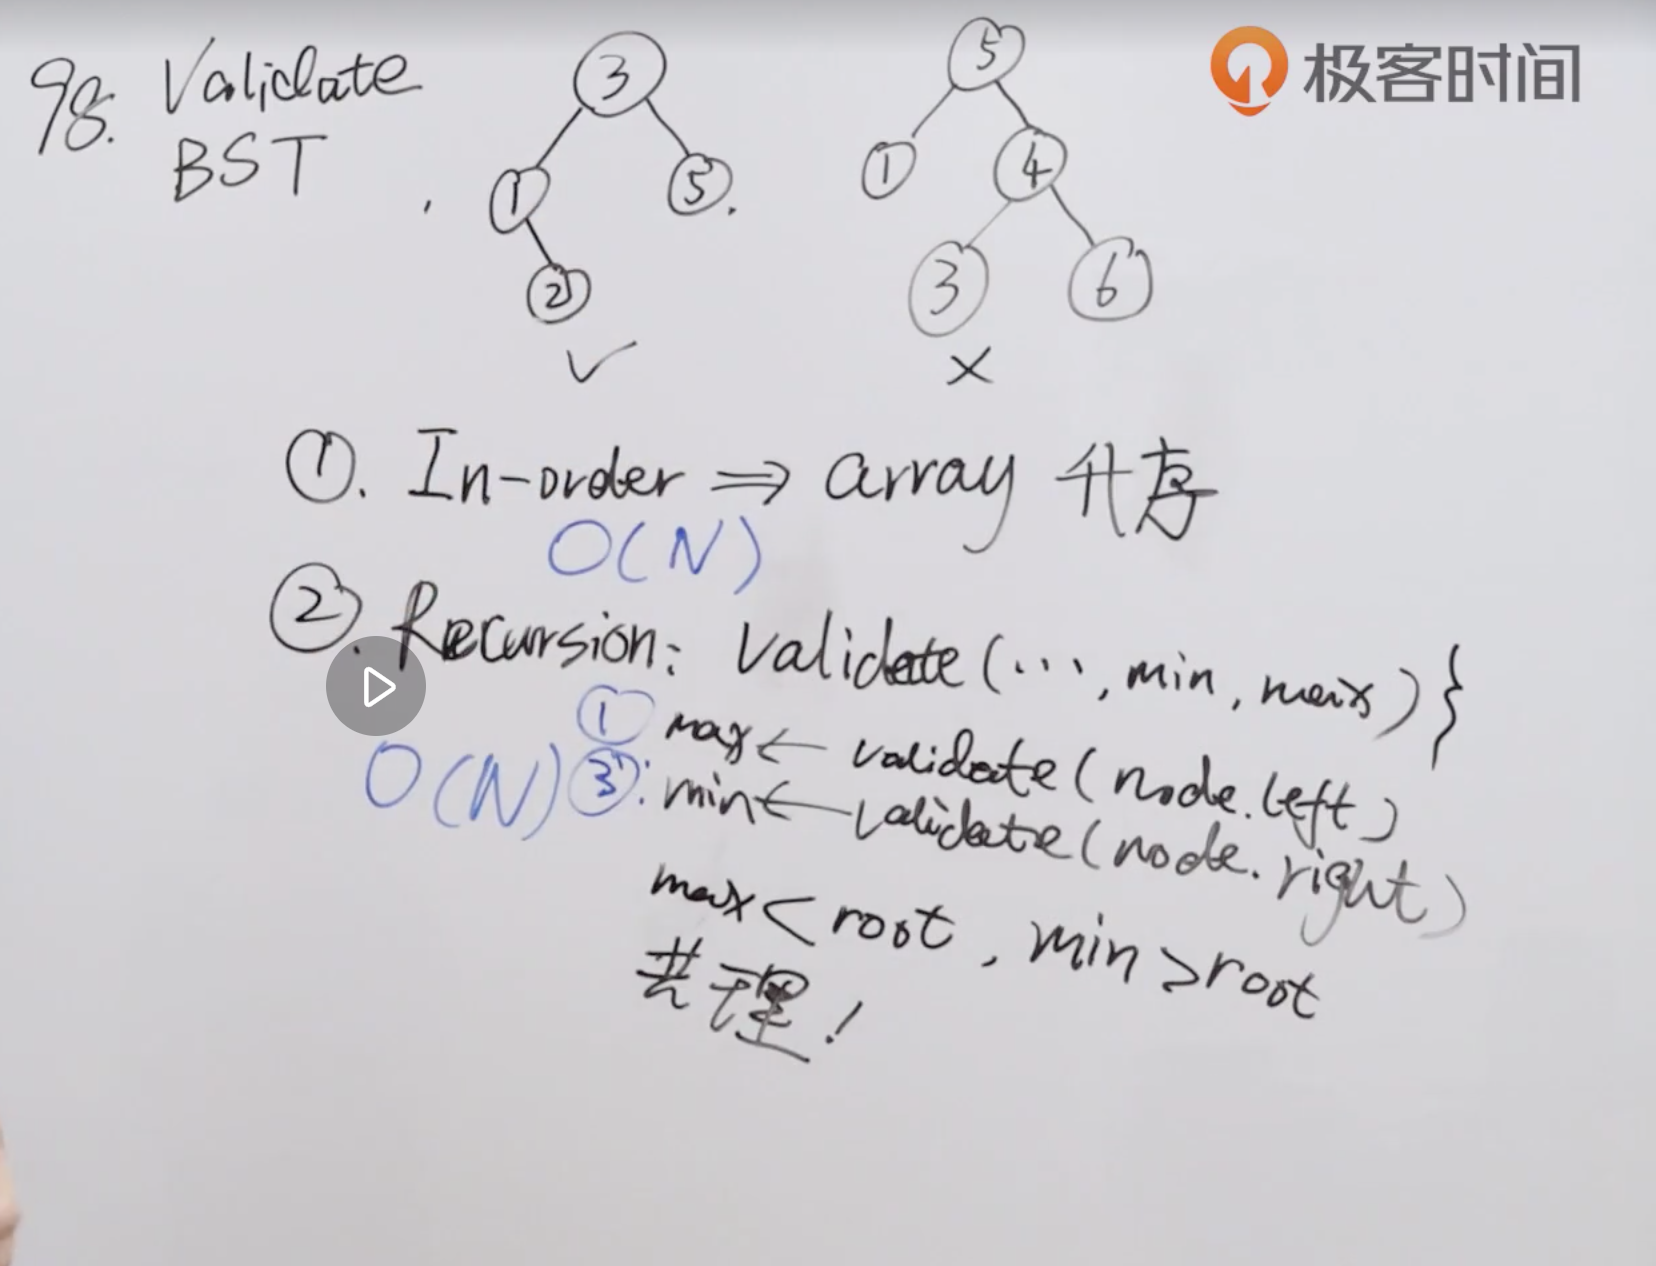 极客时间
98. Validate
BST
3
1
5
2
✓
5
1
4
3
6
×
①. In-order ⇒ array 升序
O(N)
②. Recursion: validate(..., min, max) }
① max ← validate(node.left)
O(N) ③: min ← validate(node.right)
max < root, min > root
!